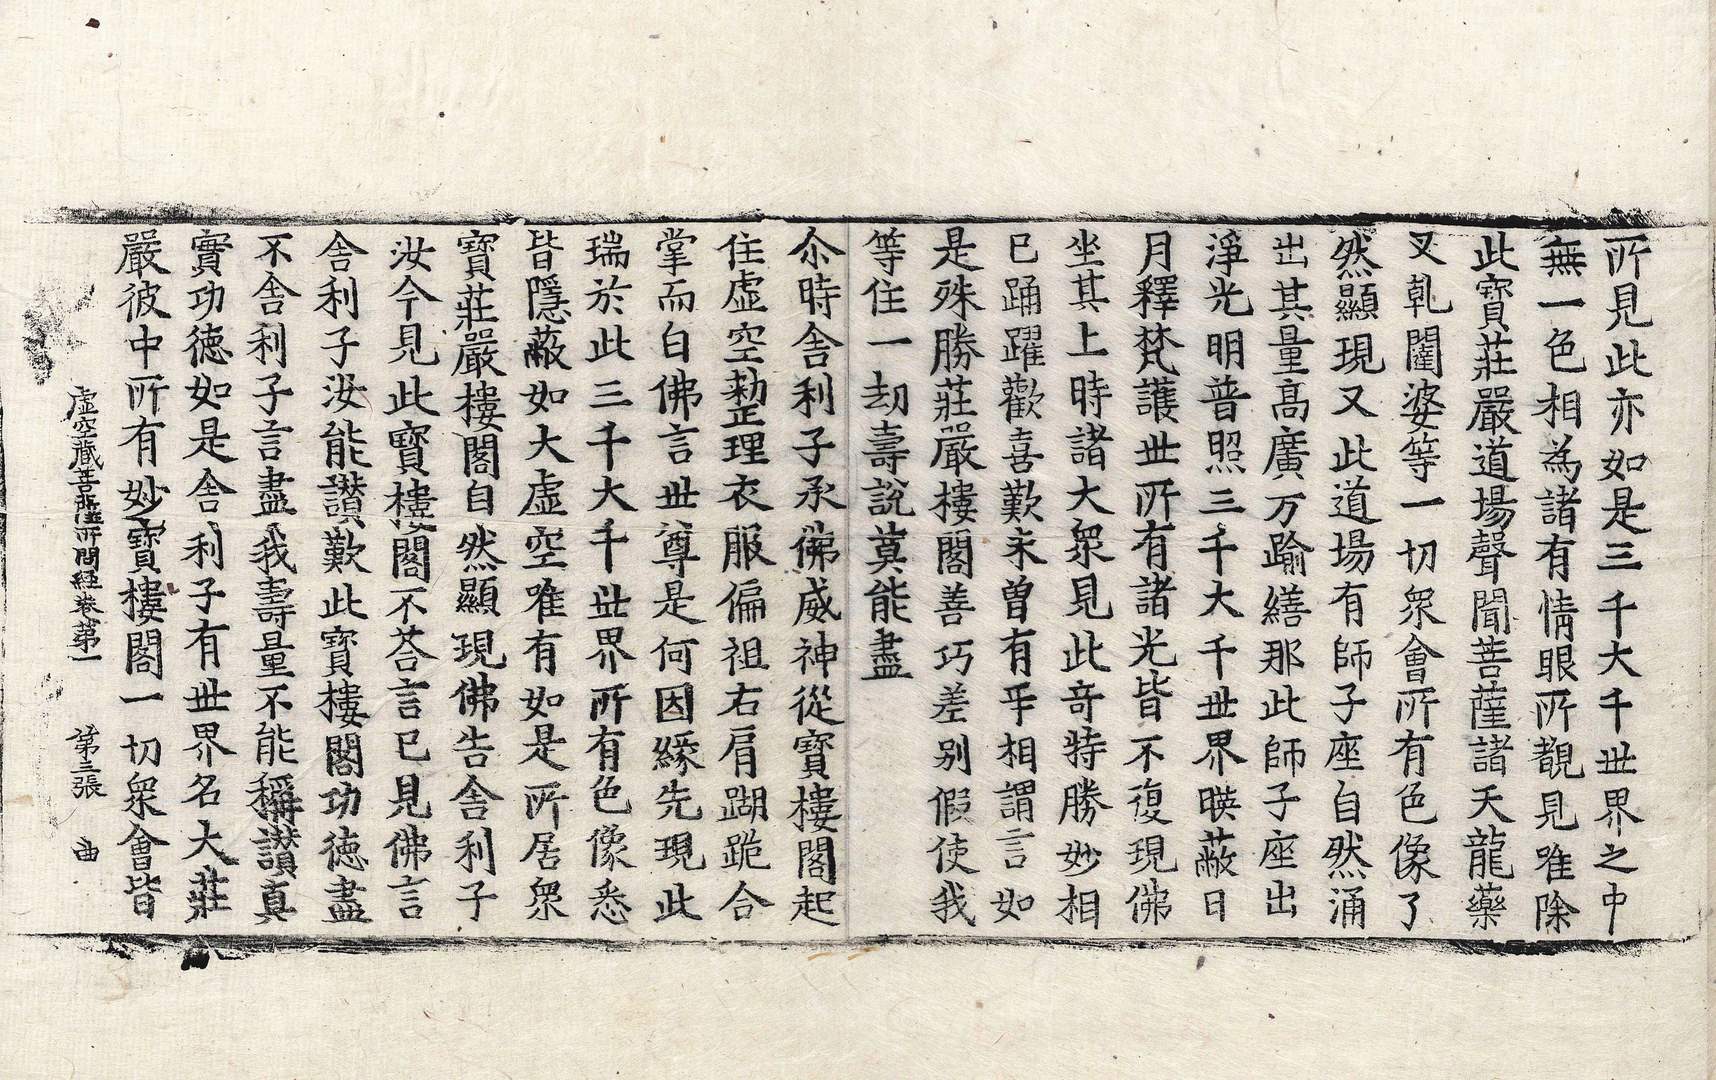 所見此亦如是三千大千世界之中
無一色相為諸有情眼所覩見唯除
此寶莊嚴道場聲聞菩薩諸天龍藥
叉乹闥婆等一切衆會所有色像了
然顯現又此道場有師子座自然涌
出其量高廣万踰繕那此師子座出
淨光明普照三千大千世界暎蔽日
月釋梵護世所有諸光皆不復現佛
坐其上時諸大衆見此竒特勝妙相
已踊躍歡喜歎未曾有乎相謂言如
是殊勝莊嚴樓閣善巧差别假使我
等住一劫壽說莫能盡
尒時舎利子承佛威神從寶樓閣起
住虛空勑整理衣服偏袒右肩䠒跪合
掌而白佛言世尊是何因緣先現此
瑞於此三千大千世界所有色像悉
皆隱蔽如大虛空唯有如是所居衆
寶莊嚴樓閣自然顯現佛告舎利子
汝今見此寶樓閣不荅言已見佛言
舎利子汝能讚歎此寶樓閣功德盡
不舎利子言盡我壽量不能稱讃真
實功德如是舎利子有世界名大莊
嚴彼中所有妙寶樓閣一切衆會皆
虛空藏菩薩所問經卷苐一 苐三張 曲